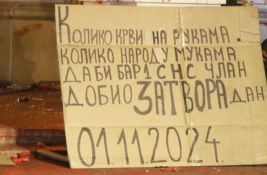 Колико крви на рукама
колико народу мукама
да би бар 1 СНС члан
добио ЗАТВОРА дан
01.11.2024.